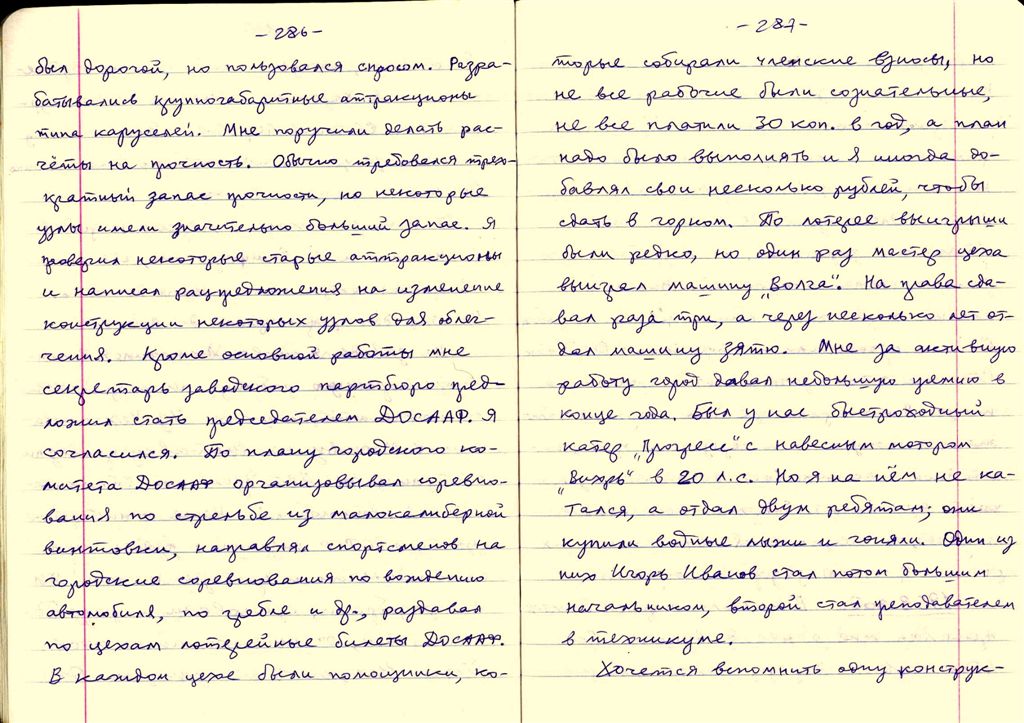 - 286 -
был дорогой, но пользовался спросом. Разра-
батывались крупногабаритные аттракционы
типа каруселей. Мне поручили делать рас-
чёты на прочность. Обычно требовался трёх-
кратный запас прочности, но некоторые
узлы имели значительно больший запас. Я
проверил некоторые старые аттракционы
и написал рацпредложения на изменение
конструкции некоторых узлов для облег-
чения. Кроме основной работы мне
секретарь заводского партбюро пред-
ложил стать председателем ДОСААФ. Я
согласился. По плану городского ко-
митета ДОСААФ организовывал соревно-
вания по стрельбе из малокалиберной
винтовки, направлял спортсменов на
городские соревнования по вождению
автомобиля, по гребле и др., раздавал
по цехам лотерейные билеты ДОСААФ.
В каждом цехе были помощники, ко-
- 287 -
торые собирали членские взносы, но
не все рабочие были сознательные,
не все платили 30 коп. в год, а план
надо было выполнять и я иногда до-
бавлял свои несколько рублей, чтобы
сдать в горком. По лотерее выигрыши
были редко, но один раз мастер цеха
выиграл машину „Волга“. На права сда-
вал раза три, а через несколько лет от-
дал машину зятю. Мне за активную
работу город давал небольшую премию в
конце года. Был у нас быстроходный
катер „Прогресс“ с навесным мотором
„Вихрь“ в 20 л.с. Но я на нём не ка-
тался, а отдал двум ребятам; они
купили водные лыжи и гоняли. Один из
них Игорь Иванов стал потом большим
начальником, второй стал преподавателем
в техникуме.
Хочется вспомнить одну конструк-